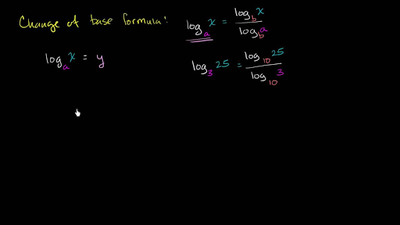 Change of base formula: logₐ x = log_b x / log_b a
logₐ x = y
log₃ 25 = log₁₀ 25 / log₁₀ 3